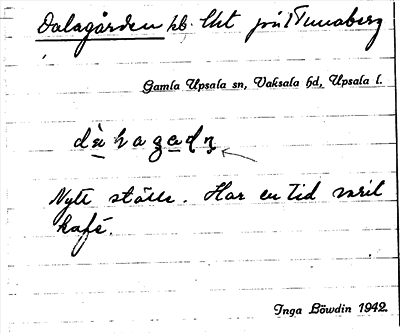 Dalagården hb. Åkt från Tunaberg
Gamla Upsala sn, Vaksala hd, Upsala l.
Nytt ställe. Har en tid varit
kafé.
Inga Löwdin 1942.